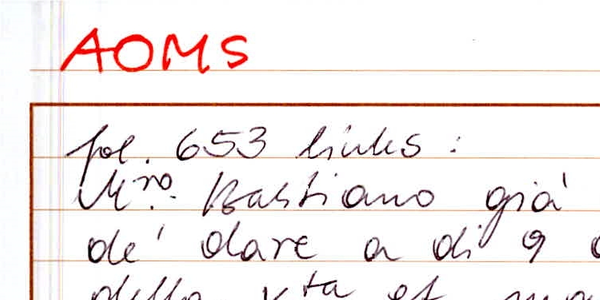 AOMS
fol. 653 links:
M.ro Bastiano già
de' dare a di 9
della